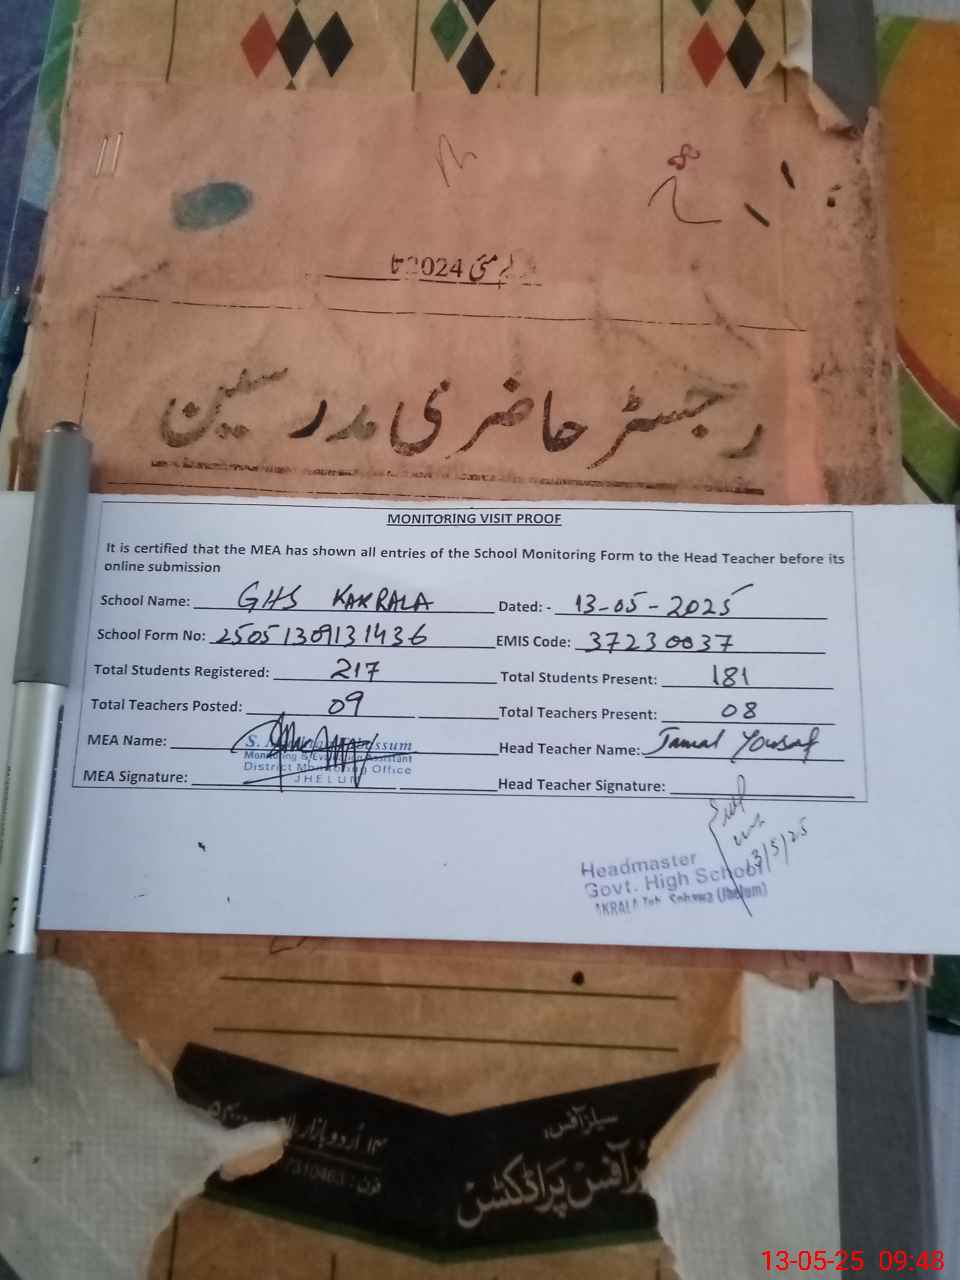 مئی 2024 تا
رجسٹر حاضری مدرسین
MONITORING VISIT PROOF
It is certified that the MEA has shown all entries of the School Monitoring Form to the Head Teacher before its
online submission
School Name: GHS KAKRALA Dated: - 13-05-2025
School Form No: 25051309131436 EMIS Code: 37230037
Total Students Registered: 217 Total Students Present: 181
Total Teachers Posted: 09 Total Teachers Present: 08
MEA Name: Head Teacher Name: Jamal Yousaf
Monitoring & Evaluation Assistant
District Monitoring Office
JHELUM
MEA Signature: Head Teacher Signature:
13/5/25
Headmaster
Govt. High School
KRALA Teh. Sohawa (Jhelum)
سیلز آفس:
آفس پراڈکٹس
۱۳ اُردو بازار
فون: 7310463
13-05-25 09:48